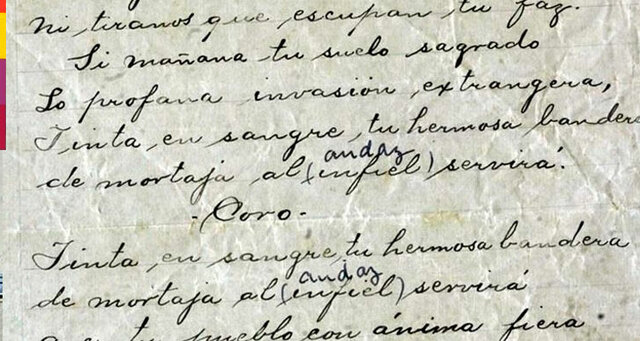 ni tiranos que escupan tu faz.
Si mañana tu suelo sagrado
Lo profana invasión extrangera,
Tinta, en sangre, tu hermosa bandera
audaz
de mortaja al (infiel) servirá.
-Coro-
Tinta, en sangre, tu hermosa bandera
audaz
de mortaja al (infiel) servirá
tu pueblo con ánima fiera